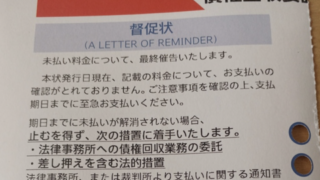 督促状
(A LETTER OF REMINDER)
未払い料金について、最終催告いたします。
本状発行日現在、記載の料金について、お支払いの
確認がとれておりません。ご注意事項を確認の上、支払
期日までに至急お支払いください。
期日までに未払いが解消されない場合、
止むを得ず、次の措置に着手いたします。
・法律事務所への債権回収業務の委託
・差し押えを含む法的措置
法律事務所、または裁判所より支払いに関する通知書